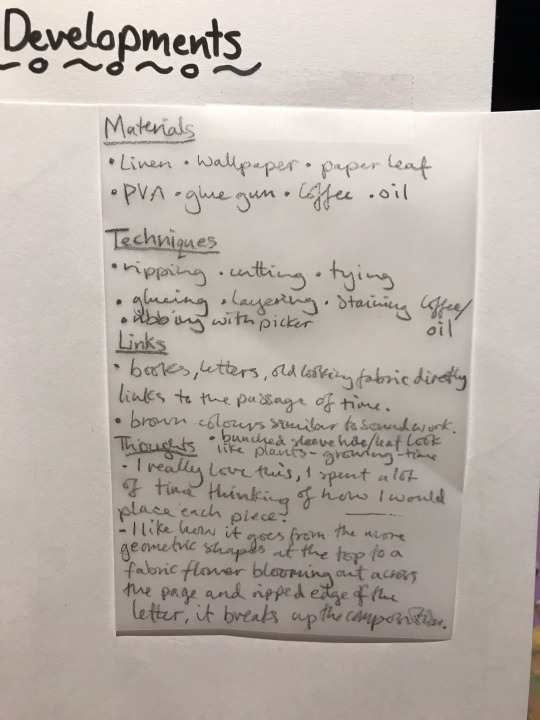 Developments
Materials
• Linen • Wallpaper • paper leaf
• PVA • glue gun • Coffee • oil
Techniques
• ripping • cutting • tying
• glueing • layering • staining coffee/
oil
• ribbing with picker
Links
• books, letters, old looking fabric directly
links to the passage of time.
• brown colours similar to sound work.
• bunched sleeve like/leaf look
like plants - growing - time
Thoughts
- I really love this, I spent a lot
of time thinking of how I would
place each piece.
- I like how it goes from the more
geometric shapes at the top to a
fabric flower blooming out across
the page and ripped edge of the
letter, it breaks up the composition.